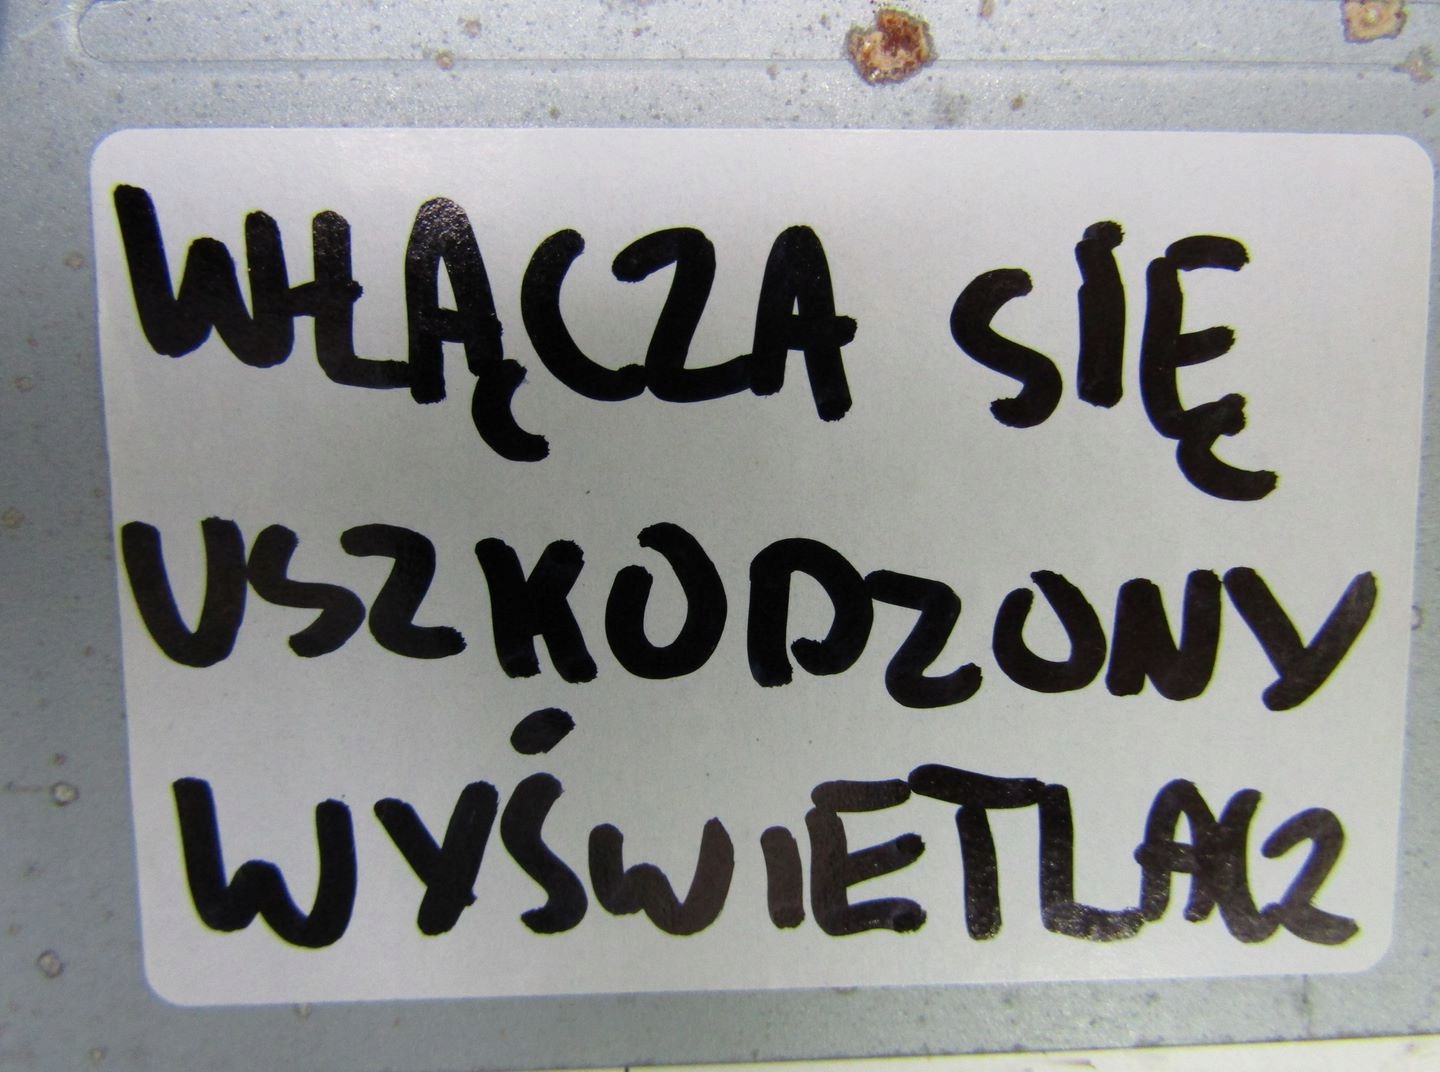 WŁĄCZA SIĘ
USZKODZONY
WYŚWIETLACZ